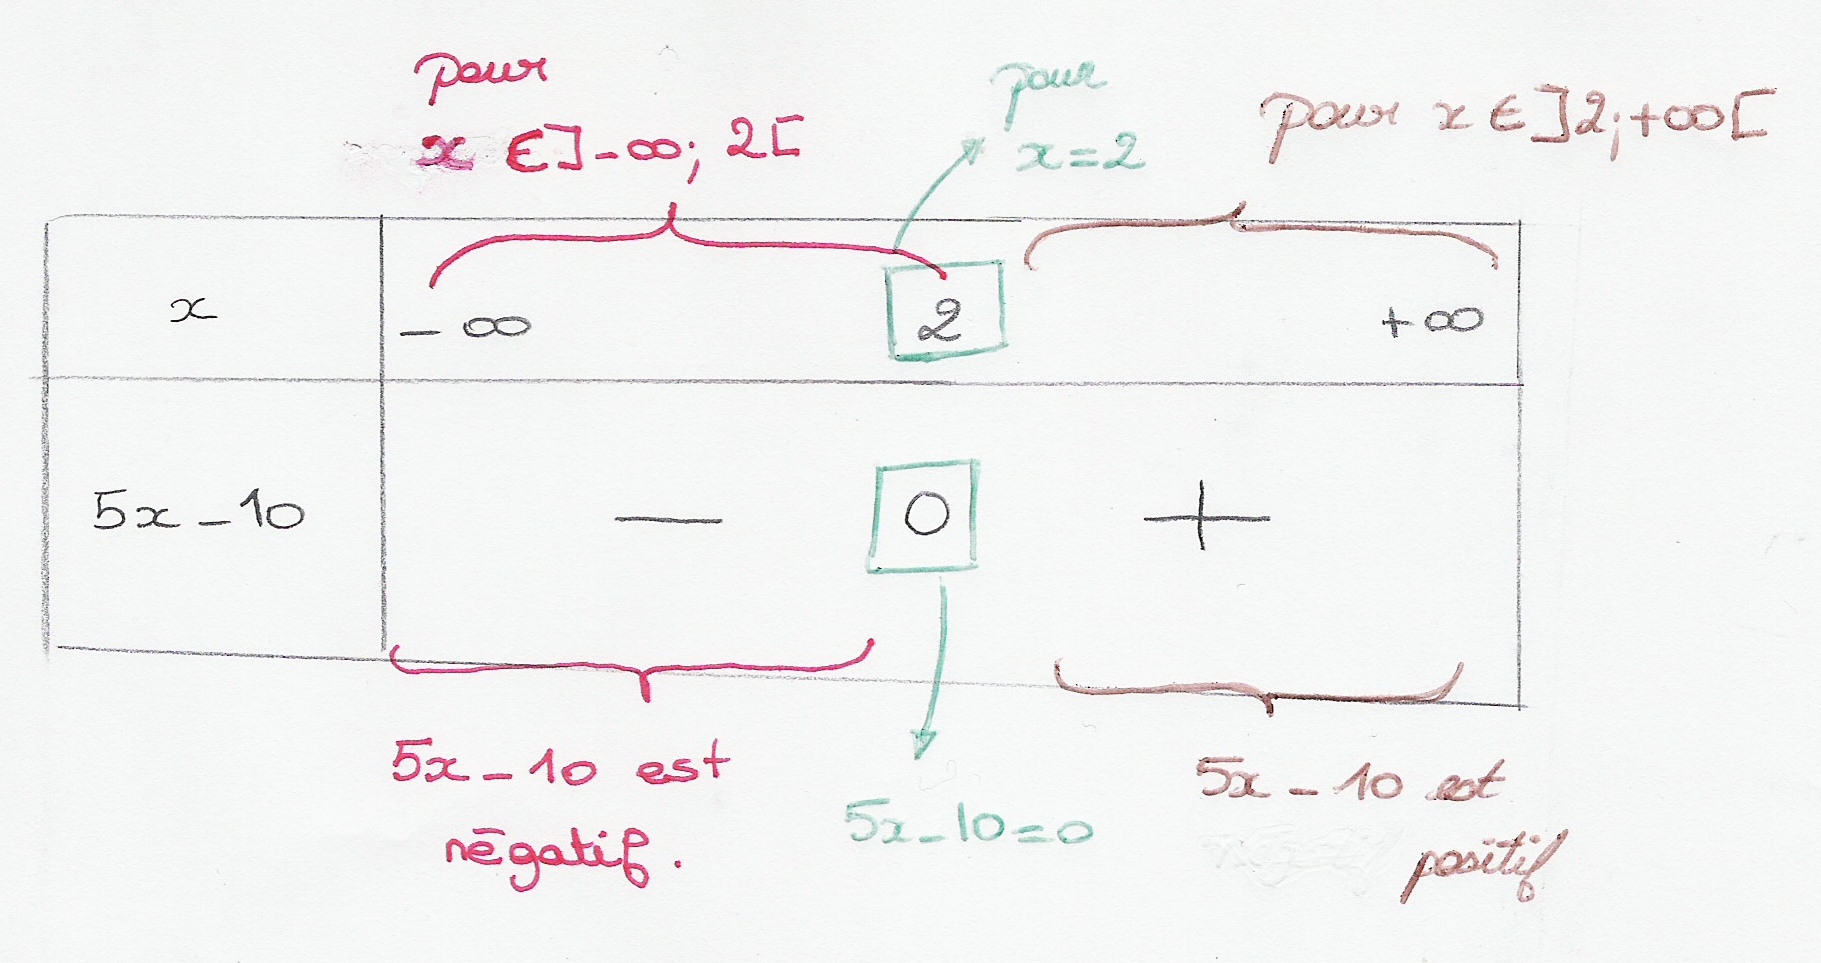 pour
x ∈ ]-∞; 2[
pour
x = 2
pour x ∈ ]2; +∞[
x
- ∞
2
+ ∞
5x - 10
—
0
+
5x - 10 est
négatif.
5x - 10 = 0
5x - 10 est
positif